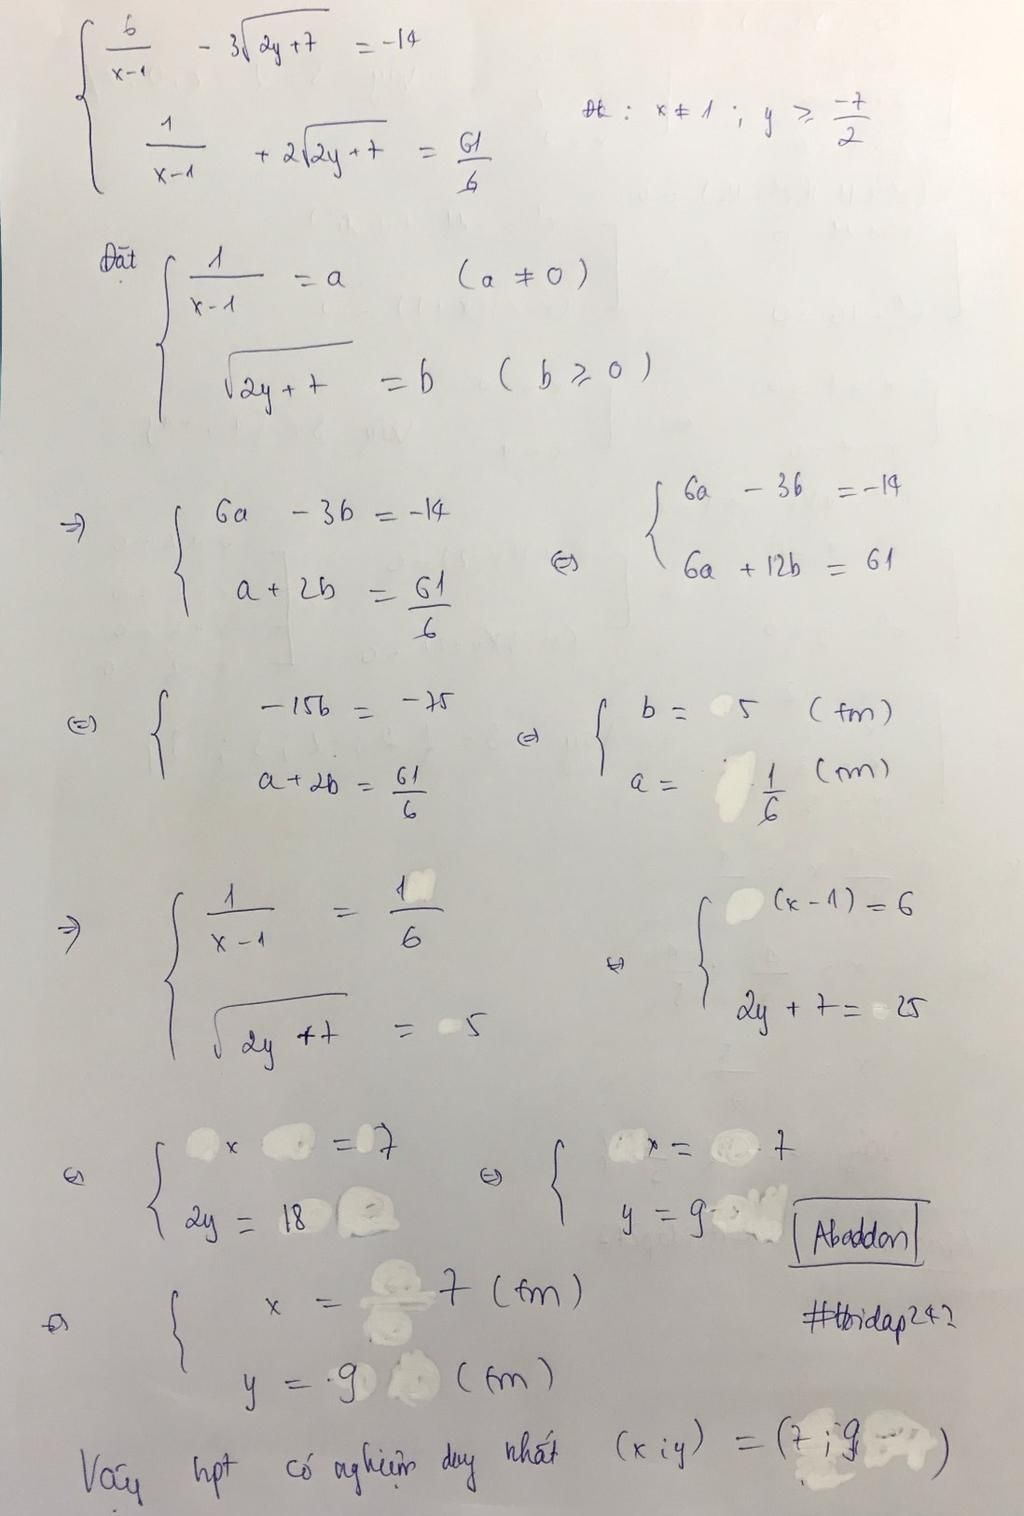 6/(x-1) - 3√(2y+7) = -14
1/(x-1) + 2√(2y+7) = 61/6
Đk : x ≠ 1 ; y ≥ -7/2
Đặt { 1/(x-1) = a (a ≠ 0)
√(2y+7) = b (b ≥ 0)
⇒ { 6a - 3b = -14
a + 2b = 61/6
⇔ { 6a - 3b = -14
6a + 12b = 61
⇔ { -15b = -75
a + 2b = 61/6
⇔ { b = 5 (tm)
a = 1/6 (tm)
⇒ { 1/(x-1) = 1/6
√(2y+7) = 5
⇔ { (x-1) = 6
2y + 7 = 25
⇔ { x = 7
2y = 18
⇔ { x = 7
y = 9
Abaddon
⇔ { x = 7 (tm)
y = 9 (tm)
Vậy hpt có nghiệm duy nhất (x;y) = (7;9)